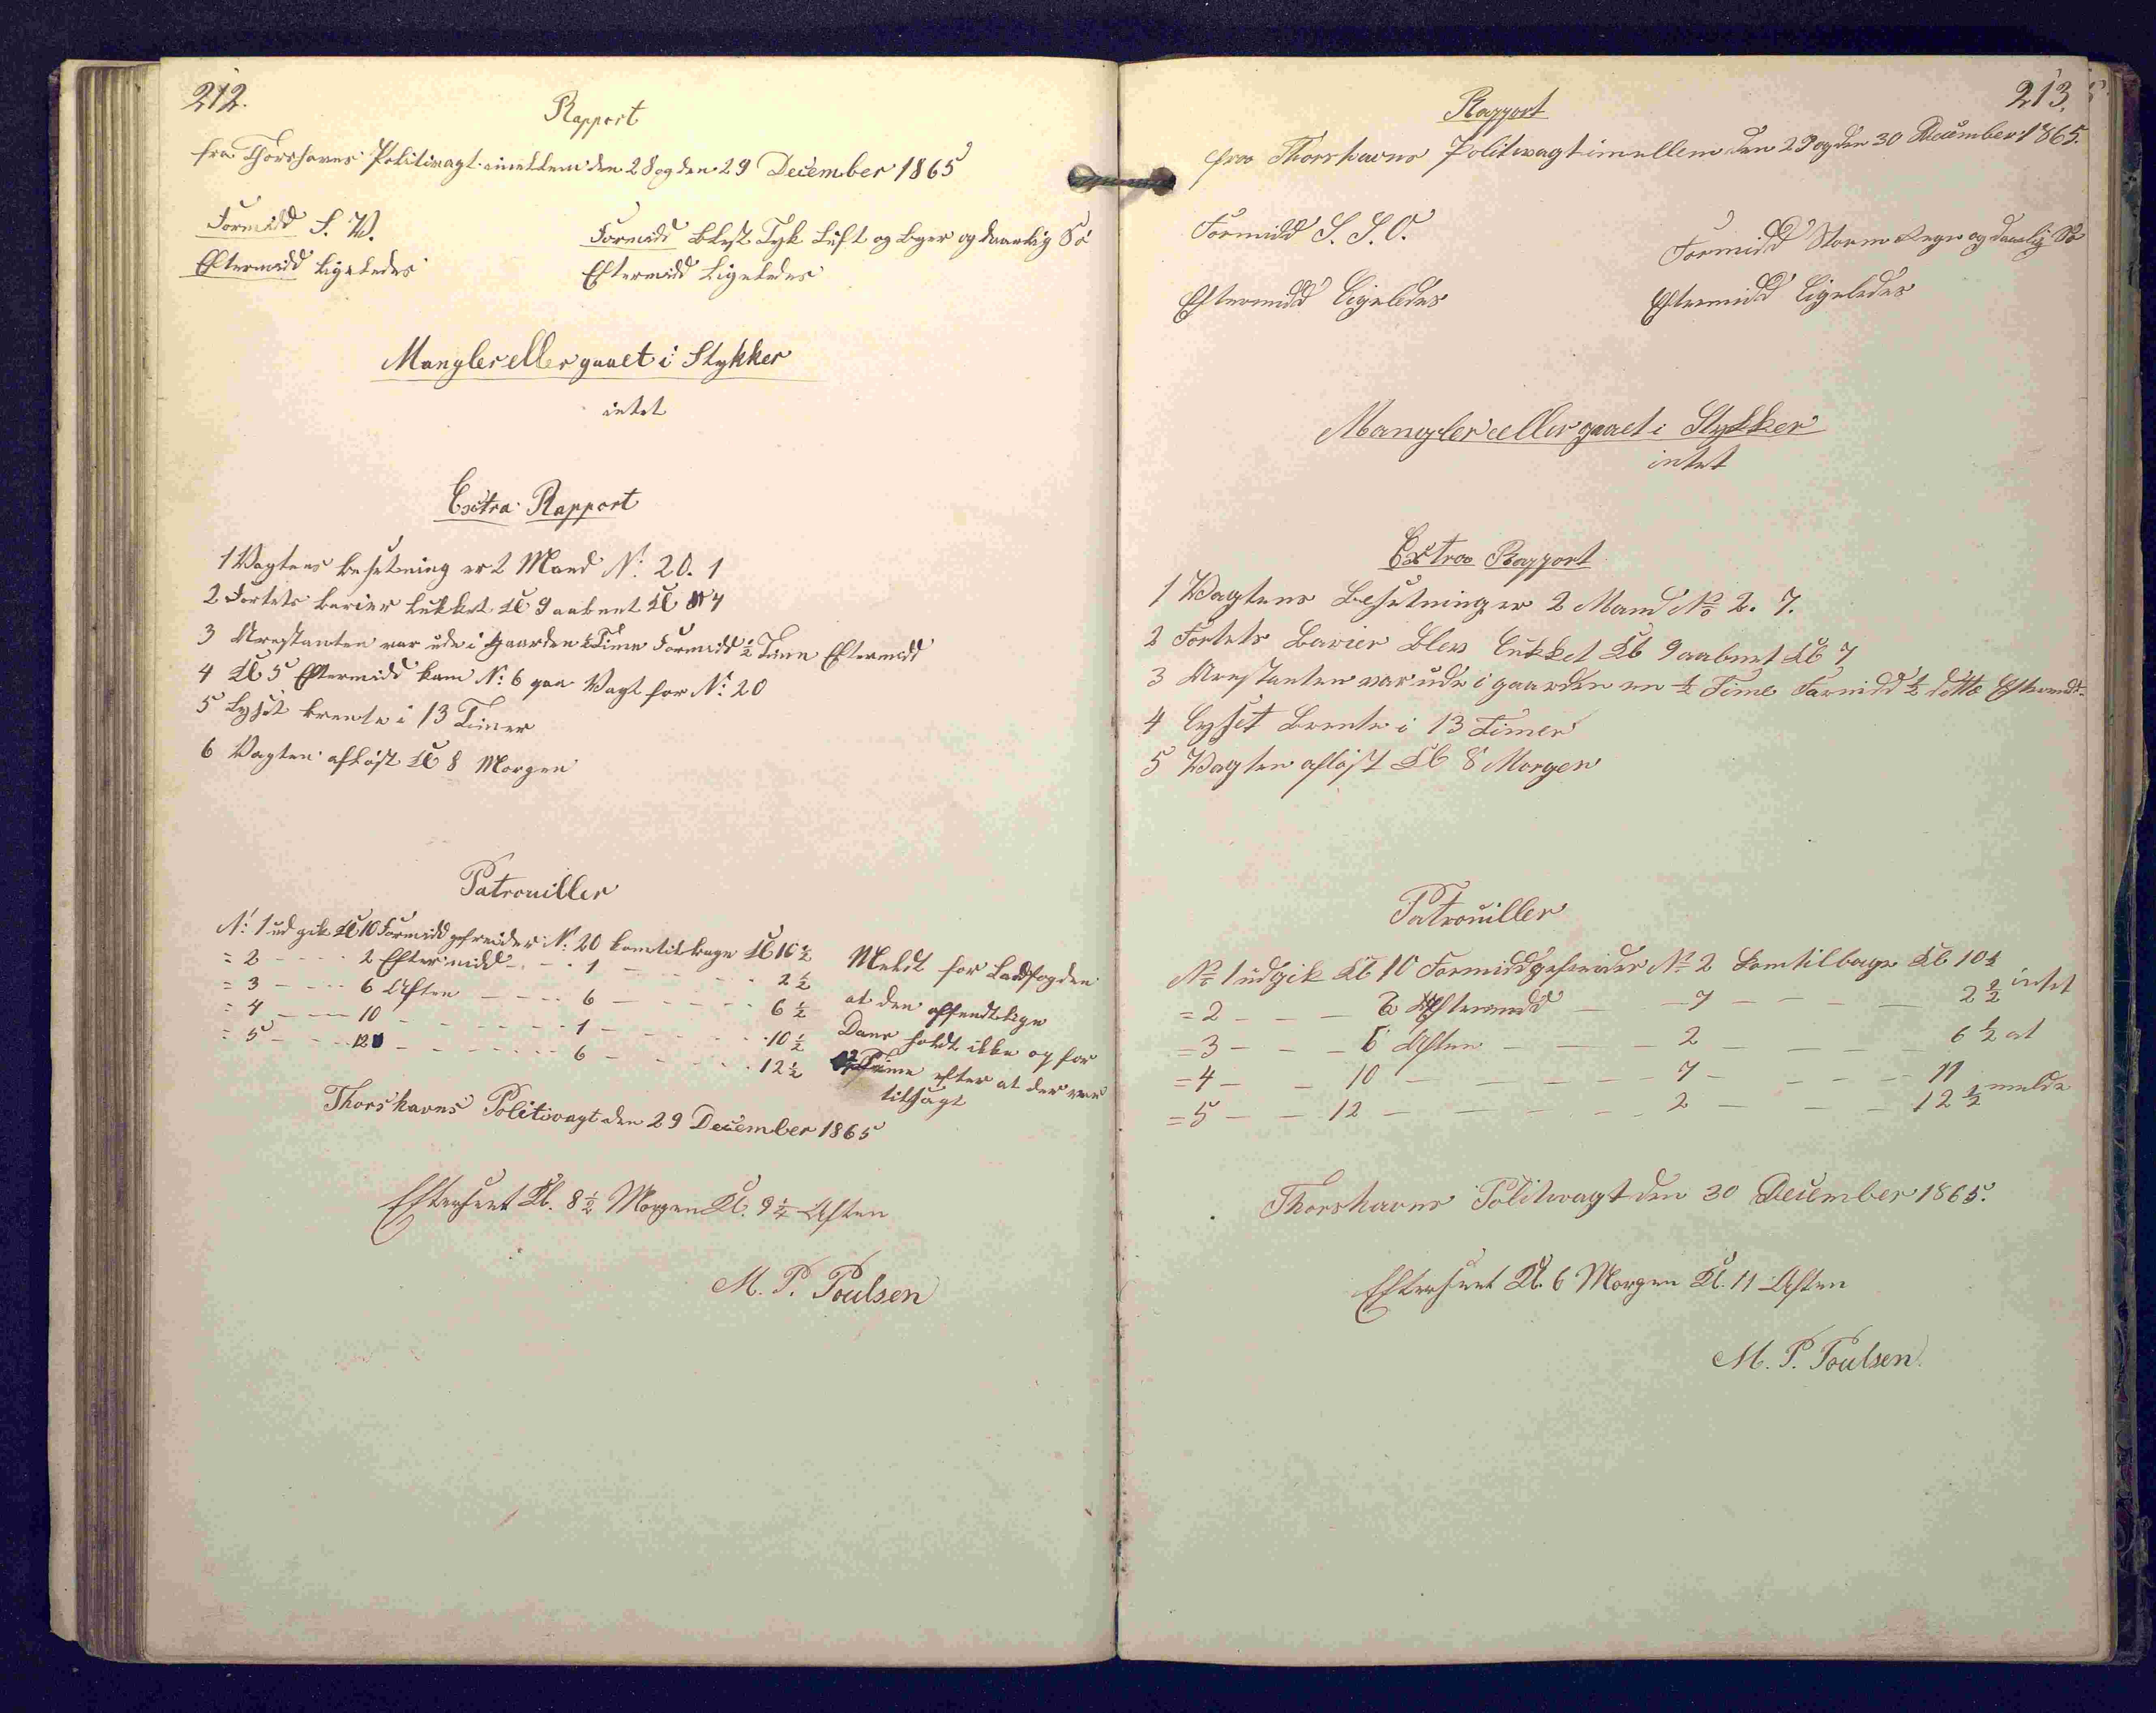 212.
Rapport
fra Thorshavns Politivagt imellem den 28 og den 29 December 1865
Formidd S. W.
Formidd Blæst Tyk Luft og Byer og daarlig Sö
Eftermidd ligeledes
Eftermidd ligeledes
Mangler eller gaaet i Stykker
intet
Extra Rapport
1 Vagtens besetning er 2 Mand N: 20. 1
2 Fortets barier lukket Kl 9 aabnet Kl 7
3 Arrestanten var ude i Gaarden ½ Time Formidd ½ Time Eftermidd
4 Kl 5 Eftermidd kom N: 6 paa Vagt for N: 20
5 Lyset brente i 13 Timer
6 Vagten aflöst Kl 8 Morgen
Patrouiller
N: 1 udgik Kl 10 Formidd gefreider N: 20 kom tilbage Kl 10 ½
= 2 - - - - 2 Eftermidd - - - 1 - - - - 2 ½
= 3 - - - - 6 Aften - - - - 6 - - - - 6 ½
= 4 - - - 10 - - - - - - 1 - - - - 10 ½
= 5 - - - 12 - - - - - - 6 - - - - 12 ½
Meldt for Landfogden
at den offendtlige
Dans holdt ikke op for
½ Time efter at der var
tilsagt
Thorshavns Politivagt den 29 December 1865
Efterseet Kl. 8 ½ Morgen Kl. 9 ¼ Aften
M. P. Poulsen
213.
Rapport
fra Thorshavns Politivagt imellem den 29 og den 30 December 1865.
Formidd S. S. O.
Formidd Storm Regn og daarlig Sö
Eftermidd ligeledes
Eftermidd ligeledes
Mangler eller gaaet i Stykker
intet
Extra Rapport
1 Vagtens Besetning er 2 Mand No 2. 7.
2 Fortets Barier blev lukket Kl 9 aabnet Kl 7
3 Arrestanten var ude i gaarden en ½ Time Formidd ½ ditto Eftermidd
4 Lyset brente i 13 Timer
5 Vagten aflöst Kl 8 Morgen
Patrouiller
No 1 udgik Kl 10 Formidd gefreider No 2 kom tilbage Kl 10 ½ intet
= 2 - - - 2 Eftermidd - - 7 - - - - 2 ½
= 3 - - - 6 Aften - - - 2 - - - - 6 ½ at
= 4 - - 10 - - - - - 7 - - - - 11
= 5 - - 12 - - - - - 2 - - - 12 ½ melde
Thorshavns Politivagt den 30 December 1865.
Efterseet Kl. 6 Morgen Kl. 11 Aften
M. P. Poulsen